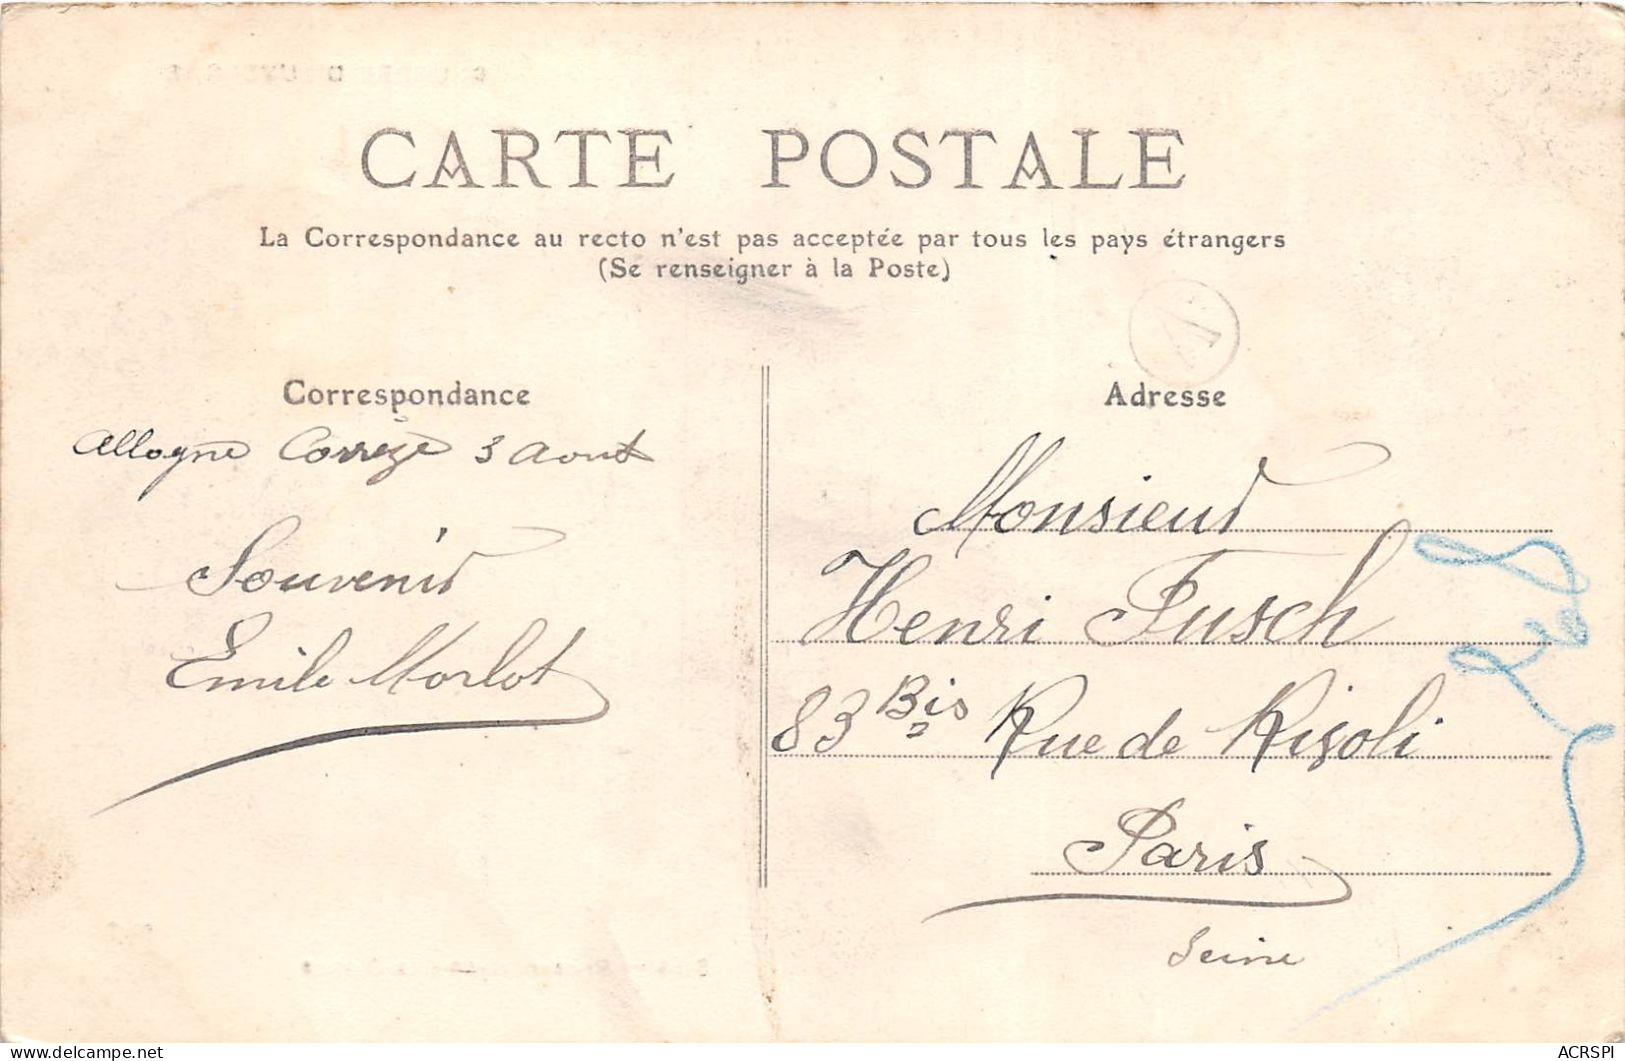 CARTE POSTALE
La Correspondance au recto n'est pas acceptée par tous les pays étrangers
(Se renseigner à la Poste)
Correspondance
Allogne Corrèze 3 Aout
Souvenir
Emile Morlot
Adresse
Monsieur
Henri Fusch
83 Bis Rue de Rigoli
Paris
Seine
ACRSPI